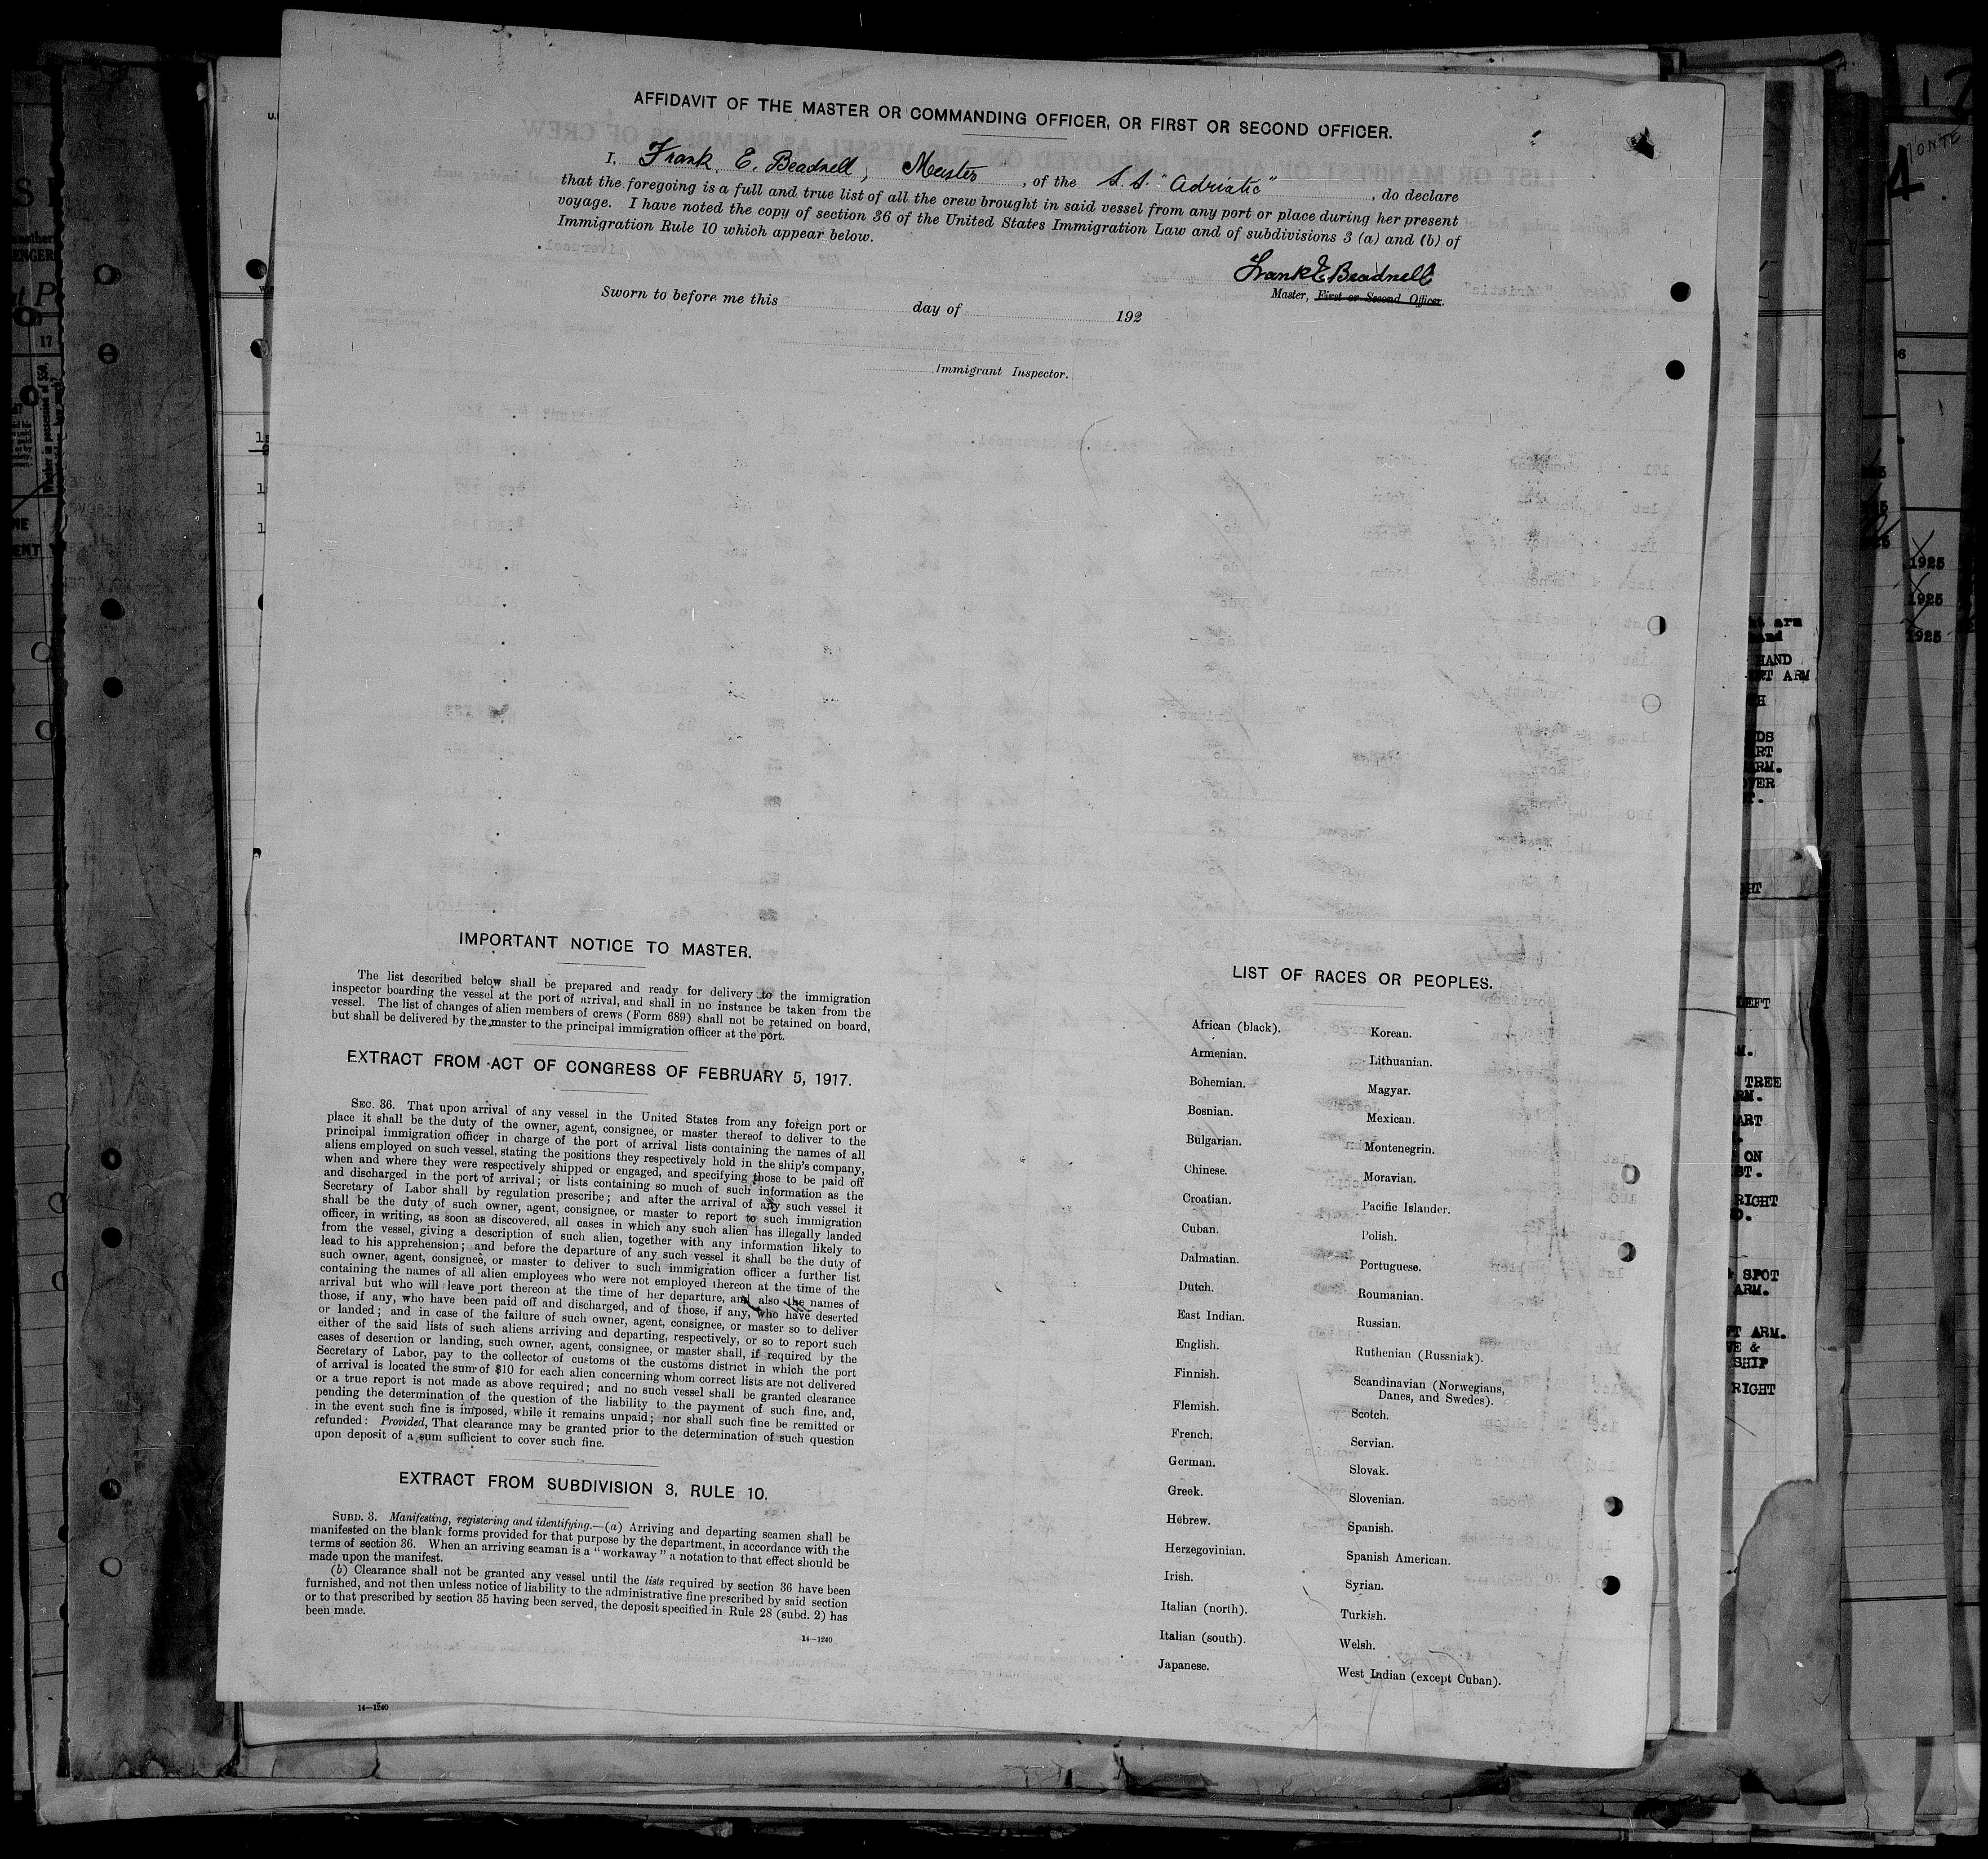 AFFIDAVIT OF THE MASTER OR COMMANDING OFFICER, OR FIRST OR SECOND OFFICER.
I, Frank E. Beadnell, Master, of the S.S. "Adriatic", do declare
that the foregoing is a full and true list of all the crew brought in said vessel from any port or place during her present
voyage. I have noted the copy of section 36 of the United States Immigration Law and of subdivisions 3 (a) and (b) of
Immigration Rule 10 which appear below.
Frank E Beadnell
Master, First or Second Officer.
Sworn to before me this day of 192
Immigrant Inspector.
IMPORTANT NOTICE TO MASTER.
The list described below shall be prepared and ready for delivery to the immigration
inspector boarding the vessel at the port of arrival, and shall in no instance be taken from the
vessel. The list of changes of alien members of crews (Form 689) shall not be retained on board,
but shall be delivered by the master to the principal immigration officer at the port.
EXTRACT FROM ACT OF CONGRESS OF FEBRUARY 5, 1917.
SEC. 36. That upon arrival of any vessel in the United States from any foreign port or
place it shall be the duty of the owner, agent, consignee, or master thereof to deliver to the
principal immigration officer in charge of the port of arrival lists containing the names of all
aliens employed on such vessel, stating the positions they respectively hold in the ship's company,
when and where they were respectively shipped or engaged, and specifying those to be paid off
and discharged in the port of arrival; or lists containing so much of such information as the
Secretary of Labor shall by regulation prescribe; and after the arrival of any such vessel it
shall be the duty of such owner, agent, consignee, or master to report to such immigration
officer, in writing, as soon as discovered, all cases in which any such alien has illegally landed
from the vessel, giving a description of such alien, together with any information likely to
lead to his apprehension; and before the departure of any such vessel it shall be the duty of
such owner, agent, consignee, or master to deliver to such immigration officer a further list
containing the names of all alien employees who were not employed thereon at the time of the
arrival but who will leave port thereon at the time of her departure, and also the names of
those, if any, who have been paid off and discharged, and of those, if any, who have deserted
or landed; and in case of the failure of such owner, agent, consignee, or master so to deliver
either of the said lists of such aliens arriving and departing, respectively, or so to report such
cases of desertion or landing, such owner, agent, consignee, or master shall, if required by the
Secretary of Labor, pay to the collector of customs of the customs district in which the port
of arrival is located the sum of $10 for each alien concerning whom correct lists are not delivered
or a true report is not made as above required; and no such vessel shall be granted clearance
pending the determination of the question of the liability to the payment of such fine, and,
in the event such fine is imposed, while it remains unpaid; nor shall such fine be remitted or
refunded: Provided, That clearance may be granted prior to the determination of such question
upon deposit of a sum sufficient to cover such fine.
EXTRACT FROM SUBDIVISION 3, RULE 10.
SUBD. 3. Manifesting, registering and identifying.—(a) Arriving and departing seamen shall be
manifested on the blank forms provided for that purpose by the department, in accordance with the
terms of section 36. When an arriving seaman is a "workaway" a notation to that effect should be
made upon the manifest.
(b) Clearance shall not be granted any vessel until the lists required by section 36 have been
furnished, and not then unless notice of liability to the administrative fine prescribed by said section
or to that prescribed by section 35 having been served, the deposit specified in Rule 28 (subd. 2) has
been made.
14—1240
14—1240
LIST OF RACES OR PEOPLES.
African (black).
Armenian.
Bohemian.
Bosnian.
Bulgarian.
Chinese.
Croatian.
Cuban.
Dalmatian.
Dutch.
East Indian.
English.
Finnish.
Flemish.
French.
German.
Greek.
Hebrew.
Herzegovinian.
Irish.
Italian (north).
Italian (south).
Japanese.
Korean.
Lithuanian.
Magyar.
Mexican.
Montenegrin.
Moravian.
Pacific Islander.
Polish.
Portuguese.
Roumanian.
Russian.
Ruthenian (Russniak).
Scandinavian (Norwegians,
Danes, and Swedes).
Scotch.
Servian.
Slovak.
Slovenian.
Spanish.
Spanish American.
Syrian.
Turkish.
Welsh.
West Indian (except Cuban).
HAND
TREE
ON
RIGHT
SPOT
ARM.
ARM.
SHIP
RIGHT
1925
1925
1925